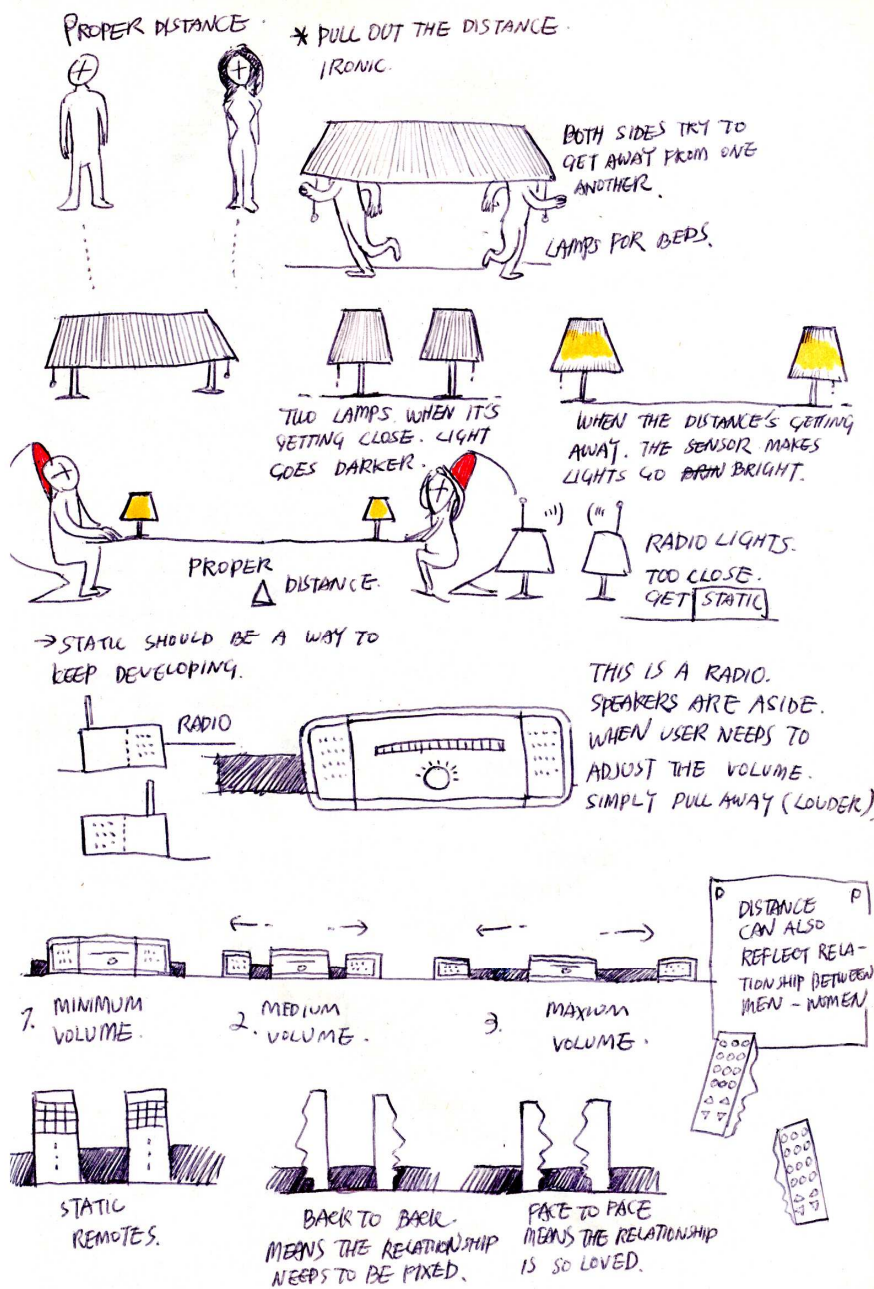 PROPER DISTANCE.
* PULL OUT THE DISTANCE.
IRONIC.
BOTH SIDES TRY TO
GET AWAY FROM ONE
ANOTHER.
LAMPS FOR BEDS.
TWO LAMPS. WHEN IT'S
GETTING CLOSE. LIGHT
GOES DARKER.
WHEN THE DISTANCE'S GETTING
AWAY. THE SENSOR MAKES
LIGHTS GO BRIN BRIGHT.
PROPER
DISTANCE.
RADIO LIGHTS.
TOO CLOSE.
GET STATIC
→ STATIC SHOULD BE A WAY TO
KEEP DEVELOPING.
RADIO
THIS IS A RADIO.
SPEAKERS ARE ASIDE.
WHEN USER NEEDS TO
ADJUST THE VOLUME.
SIMPLY PULL AWAY (LOUDER)
1. MINIMUM
VOLUME.
2. MEDIUM
VOLUME.
3. MAXIUM
VOLUME.
DISTANCE
CAN ALSO
REFLECT RELA-
TIONSHIP BETWEEN
MEN - WOMEN
STATIC
REMOTES.
BACK TO BACK.
MEANS THE RELATIONSHIP
NEEDS TO BE FIXED.
FACE TO FACE
MEANS THE RELATIONSHIP
IS SO LOVED.